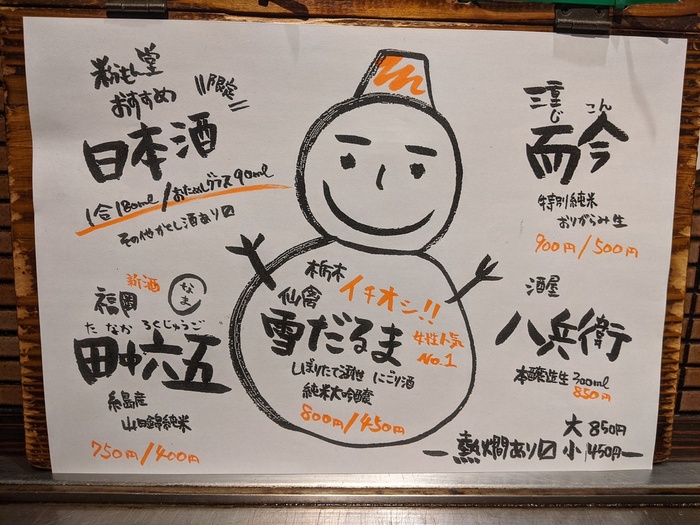 粉もん堂
おすすめ
限定
日本酒
1合180ml/おためしグラス90ml
その他かくし酒あり〼
三重
じ こん
而今
特別純米
おりがらみ生
900円/500円
新酒
なま
福岡
たなか ろくじゅうご
田中六五
糸島産
山田錦純米
750円/400円
栃木
仙禽
イチオシ!!
雪だるま
女性人気
No.1
しぼりたて活性 にごり酒
純米大吟醸
800円/450円
酒屋
八兵衛
本醸造生 300ml
850円
大 850円
熱燗あり〼 小 450円